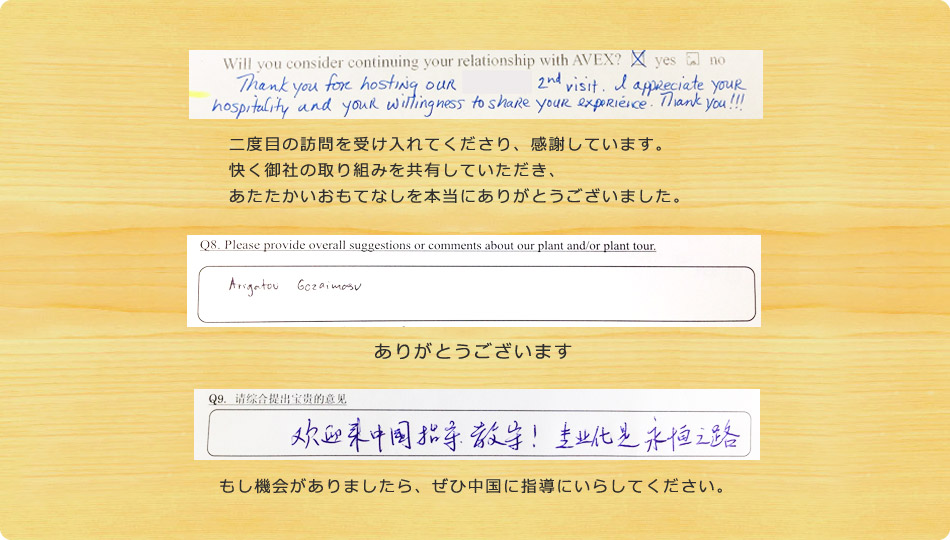 Will you consider continuing your relationship with AVEX? ☒ yes ☐ no
Thank you for hosting our 2nd visit. I appreciate your
hospitality and your willingness to share your experience. Thank you!!!
二度目の訪問を受け入れてくださり、感謝しています。
快く御社の取り組みを共有していただき、
あたたかいおもてなしを本当にありがとうございました。
Q8. Please provide overall suggestions or comments about our plant and/or plant tour.
Arigatou Gozaimasu
ありがとうございます
Q9. 请综合提出宝贵的意见
欢迎来中国指导 教学! 业化是 永恒之路
もし機会がありましたら、ぜひ中国に指導にいらしてください。